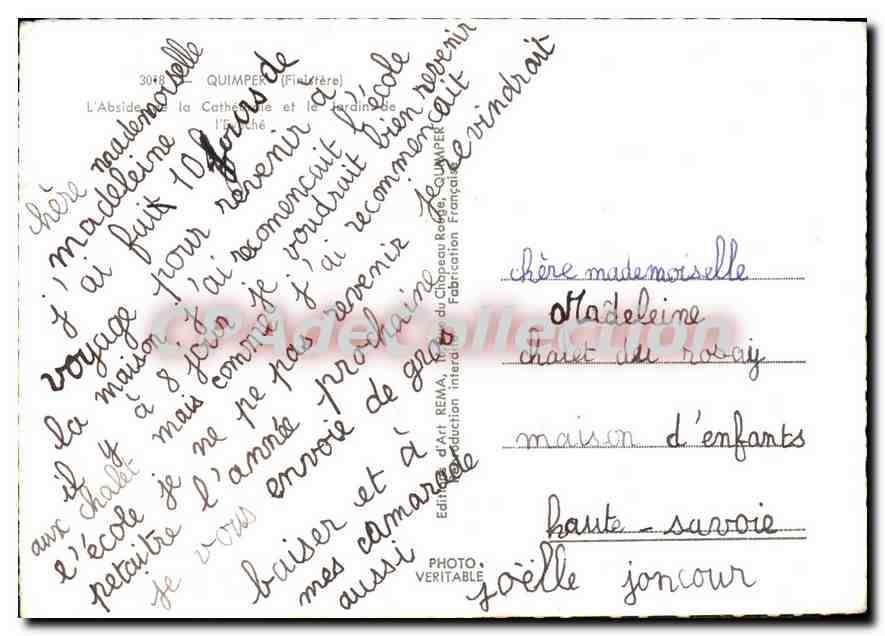 3018 — QUIMPER (Finistère)
L'Abside de la Cathédrale et le Jardin de
l'Evêché
chère mademoiselle
madeleine
j'ai fait 10 jours de
voyage pour revenir à
la maison j'ai recomencait l'école
il y à 8 jour je voudrait bien revenir
aux chalet mais comme j'ai recommencait
l'école je ne pe pas revenir je revindrait
petaitre l'année prochaine
je vous envoie de gros
baiser et à
mes camarade
aussi
Editions d'Art REMA, du Chapeau Rouge, QUIMPER
Reproduction interdite Fabrication Française
PHOTO
VERITABLE
CPAdeCollection.com
chère mademoiselle
Madeleine
chalet du rosay
maison d'enfants
haute-savoie
joëlle joncour